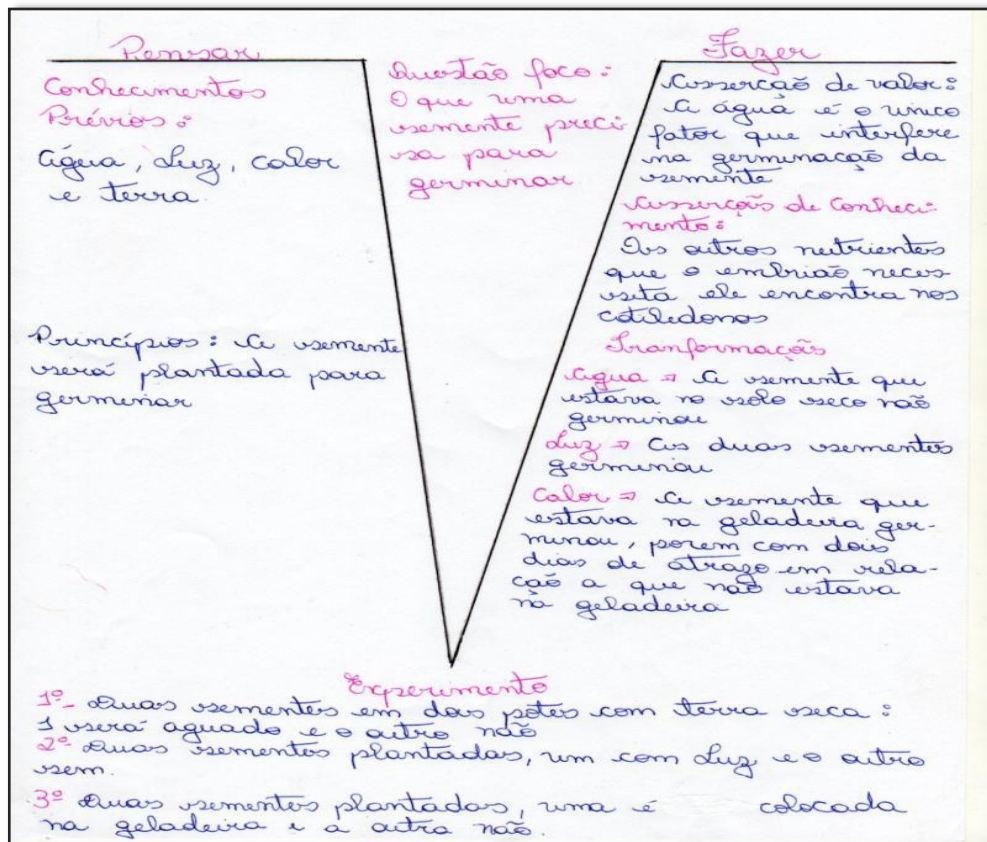 Pensar
Conhecimentos
Prévios:
água, Luz, calor
e terra.
Princípios: A semente
será plantada para
germinar
Questão foco:
O que uma
semente preci
sa para
germinar.
Fazer
Asserção de valor:
A água é o único
fator que interfere
na germinação da
semente
Asserções de Conheci-
mento:
Os outros nutrientes
que o embrião neces-
sita ele encontra nos
cotiledonos
Tranformações
Agua → A semente que
estava no solo seco não
germinou
Luz → As duas sementes
germinou
Calor → A semente que
estava na geladeira ger-
minou, porem com dois
dias de atrazo em rela-
ção a que não estava
na geladeira
Experimento
1º- Duas sementes em dois potes com terra seca:
1 será aguado e o outro não
2º Duas sementes plantadas, um com Luz e o outro
sem.
3º Duas sementes plantadas, uma é colocada
na geladeira e a outra não.